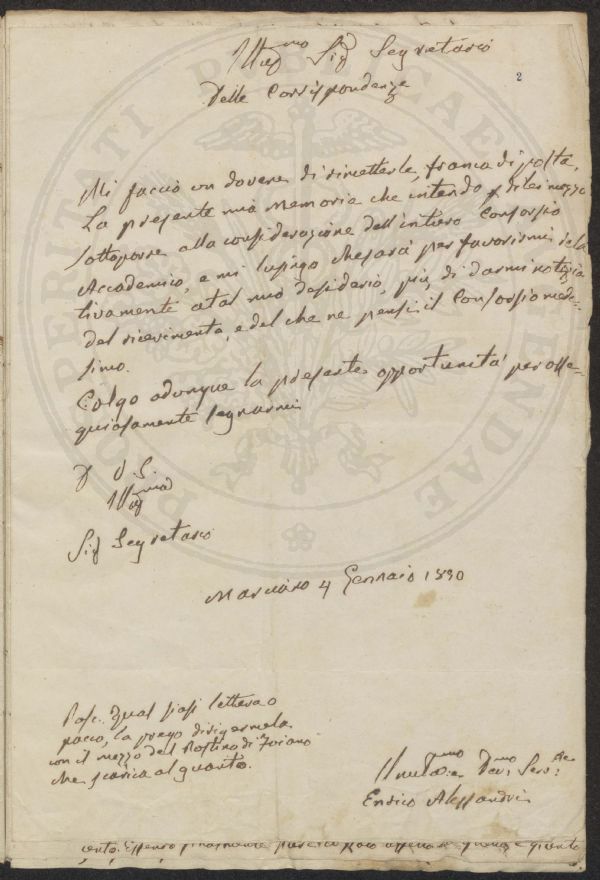 Illmo Sig Segretario
Delle Corrispondenze
2
Mi faccio un dovere di rimetterle, franca di posta,
La presente mia Memoria che intendo p di lei mezzo
sottoporre alla considerazione dell'intiero Consorzio
Accademico, e mi lusingo che sarà per favorirmi rela
tivamente a tal mio desiderio, più di darmi notizia
del ricevimento, e del che ne pensi il Consorzio mede-
simo.
Colgo adunque la presente opportunità per osse-
quiosamente segnarmi
D V S.
Illma
Sig Segretario
Marciano 4 Gennaio 1830
qual siasi lettera o
pacco, la prego dirigermela
con il mezzo del Postino di Foiano
che scarica al
Umo Devmo Servre
Enrico Alessandri
PERITATI PUBLICAE